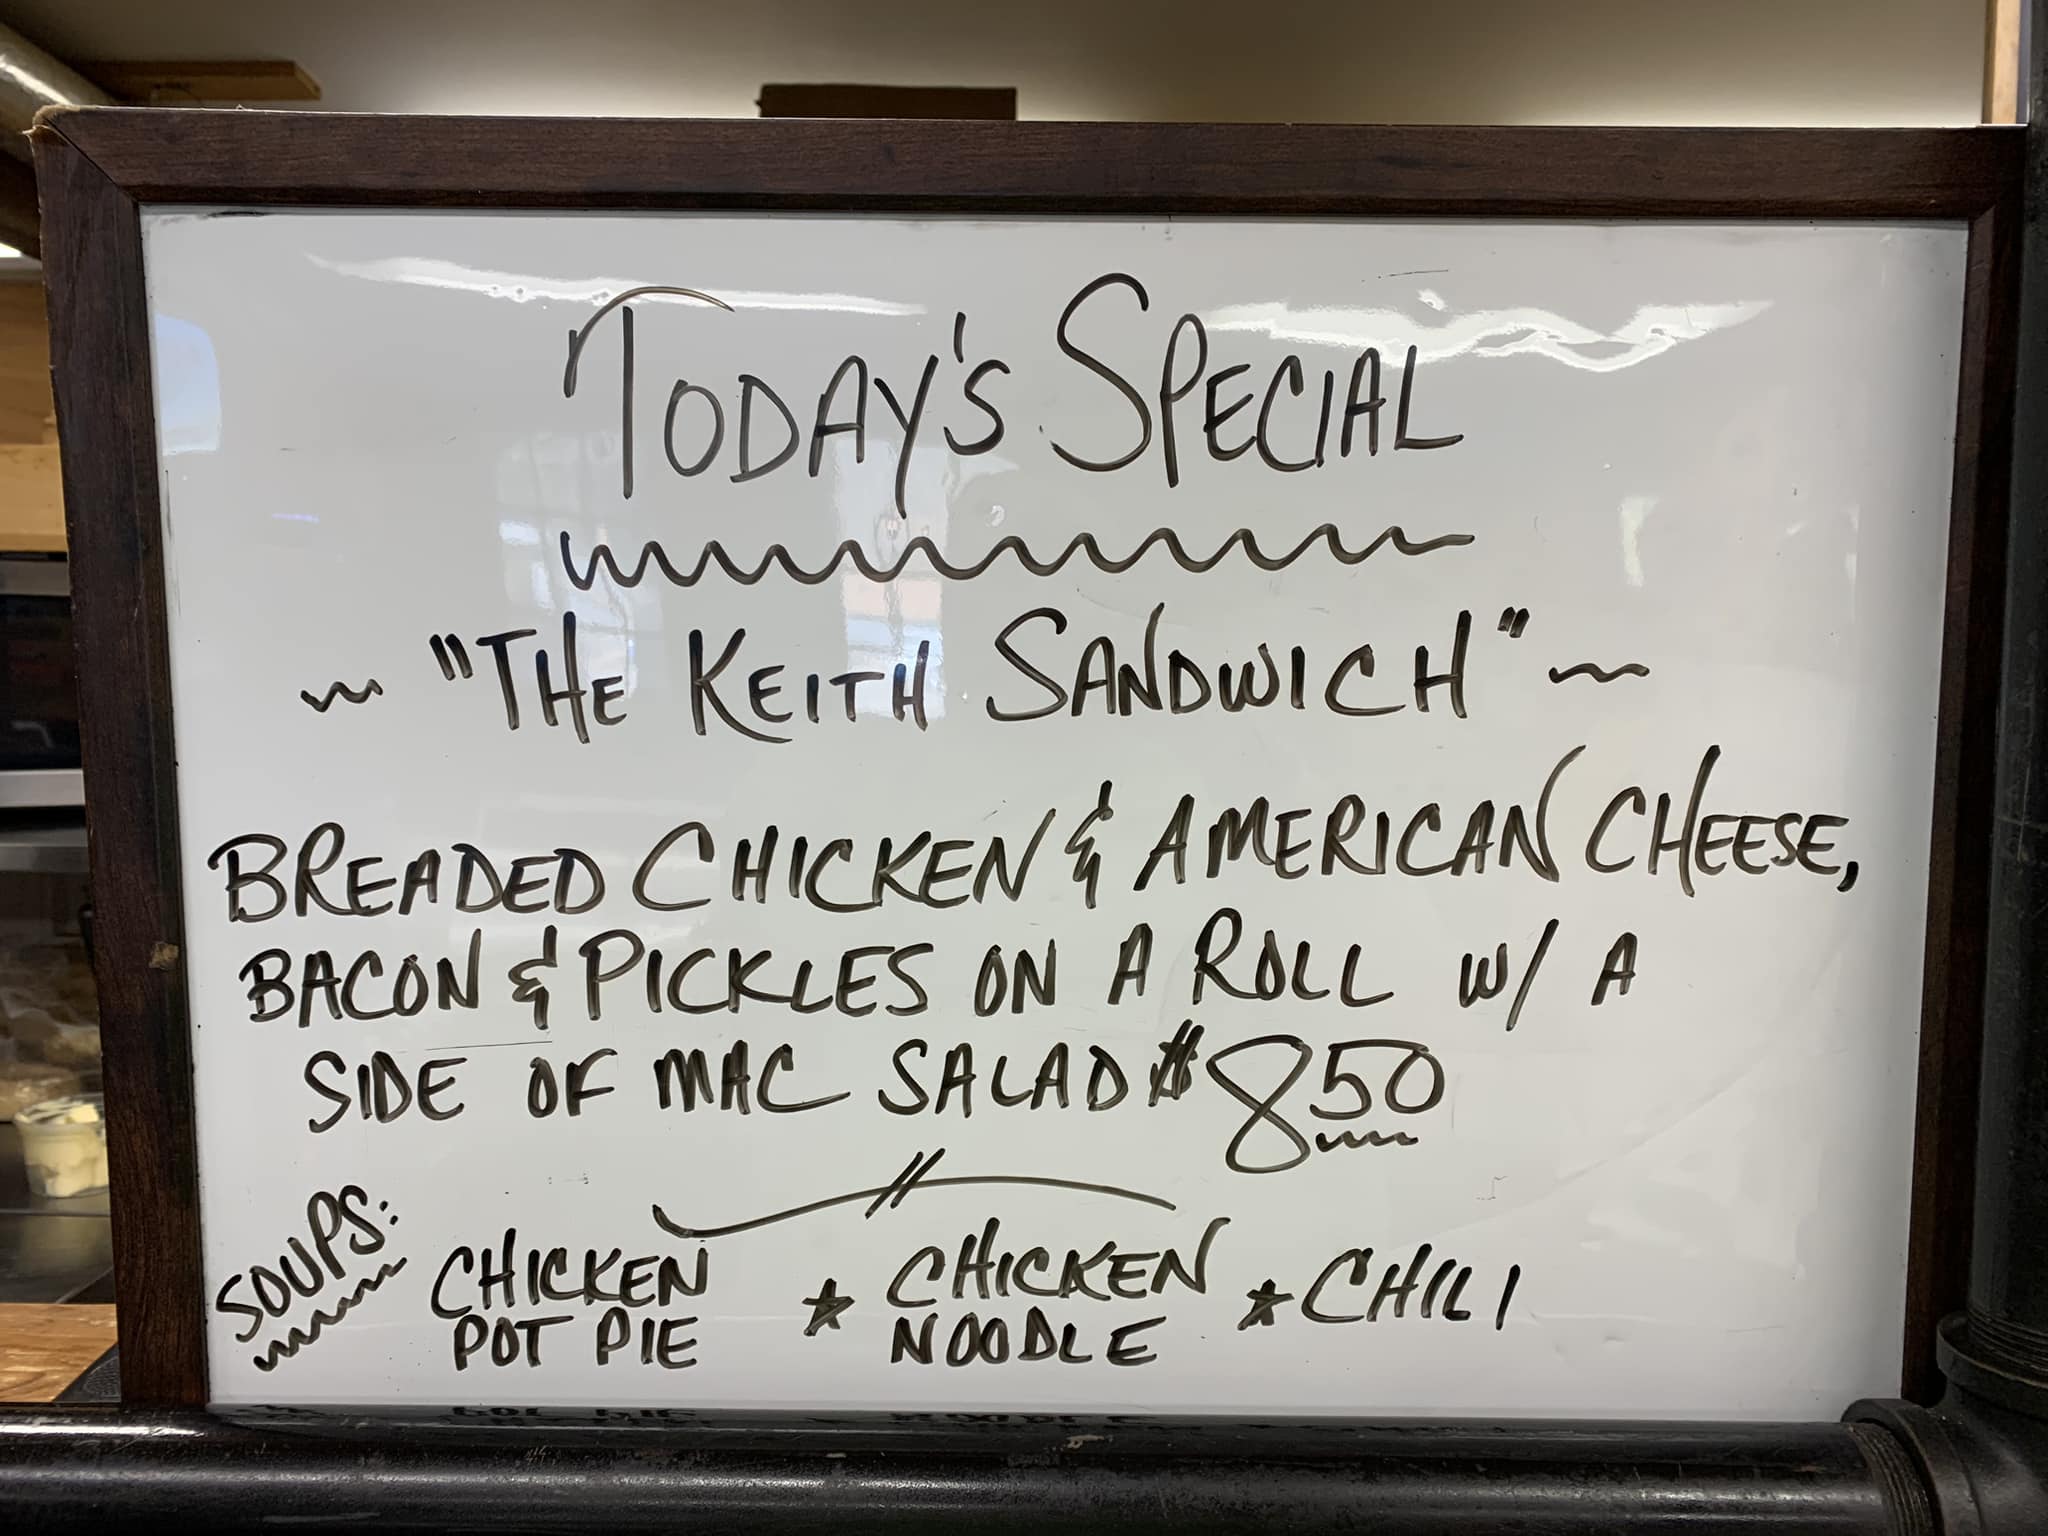 TODAY'S SPECIAL
~ "THE KEITH SANDWICH" ~
BREADED CHICKEN & AMERICAN CHEESE,
BACON & PICKLES ON A ROLL W/ A
SIDE OF MAC SALAD $850
SOUPS: CHICKEN POT PIE * CHICKEN NOODLE * CHILI